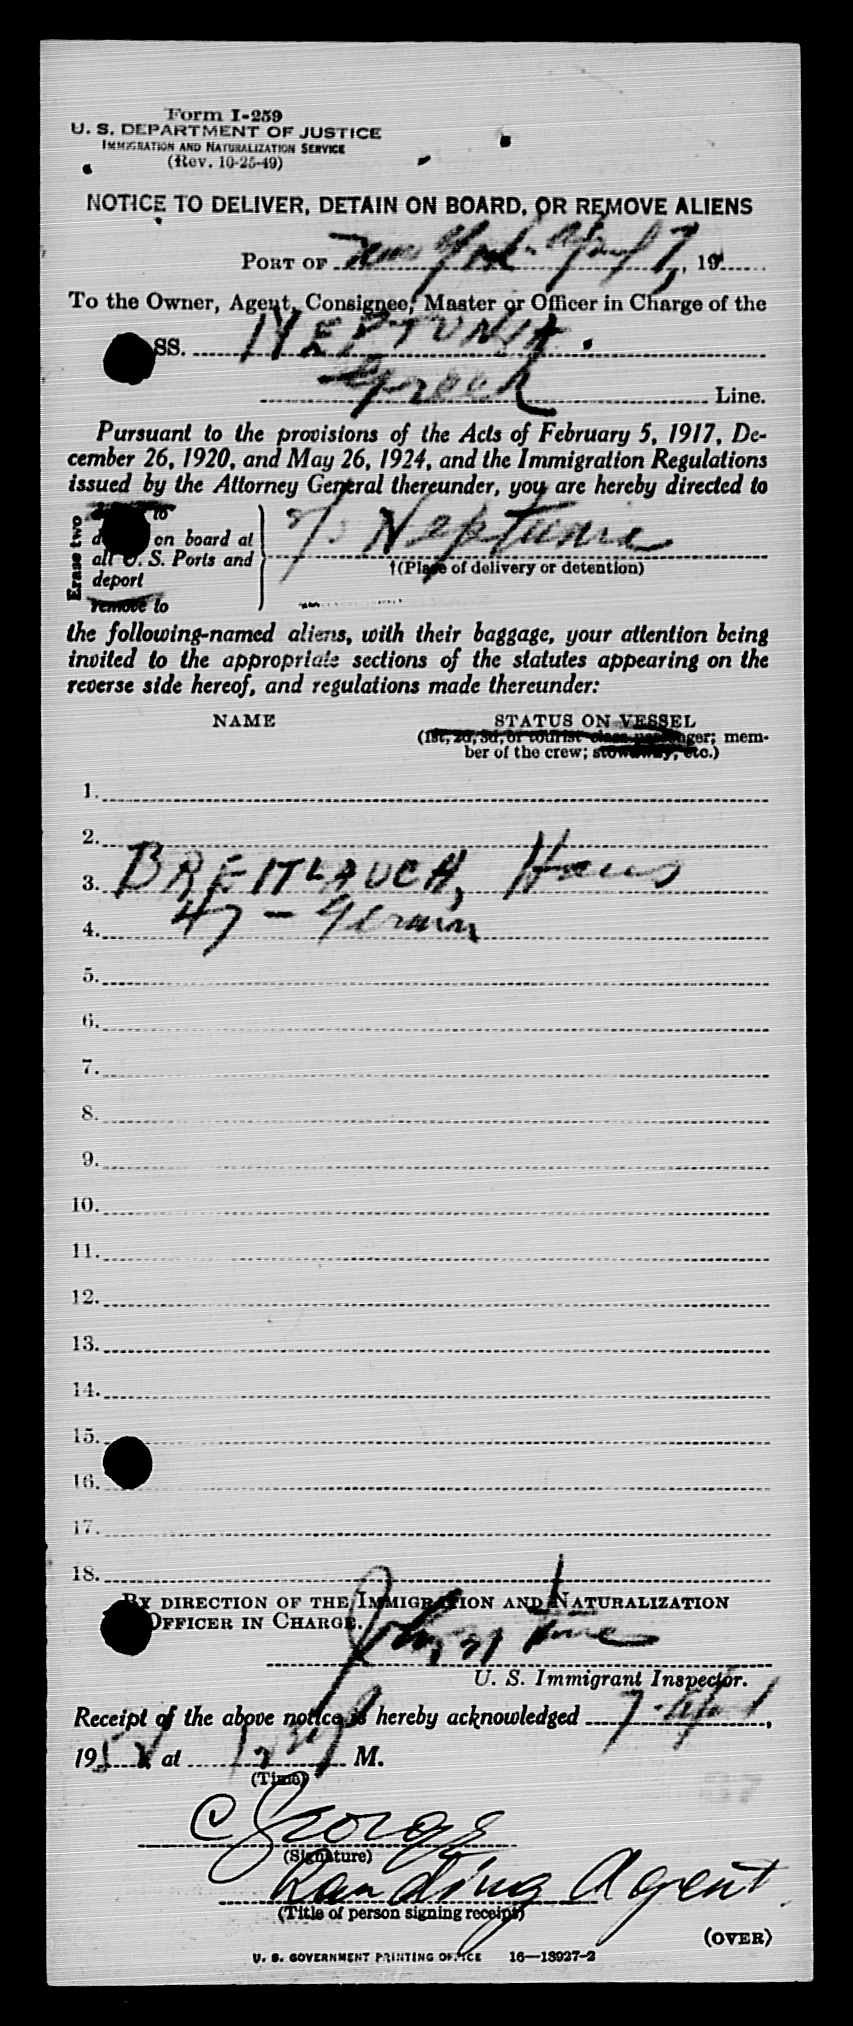 Form I-259
U. S. DEPARTMENT OF JUSTICE
IMMIGRATION AND NATURALIZATION SERVICE
(Rev. 10-25-49)
NOTICE TO DELIVER, DETAIN ON BOARD, OR REMOVE ALIENS
PORT OF New York - April 7, 19
To the Owner, Agent, Consignee, Master or Officer in Charge of the
SS. NEPTUNIA.
Greek Line.
Pursuant to the provisions of the Acts of February 5, 1917, De-
cember 26, 1920, and May 26, 1924, and the Immigration Regulations
issued by the Attorney General thereunder, you are hereby directed to
Erase two
to
on board at
all U. S. Ports and
deport
remove to
Neptunia
†(Place of delivery or detention)
the following-named aliens, with their baggage, your attention being
invited to the appropriate sections of the statutes appearing on the
reverse side hereof, and regulations made thereunder:
NAME STATUS ON VESSEL
(1st, 2d, 3d, or tourist class passenger; mem-
ber of the crew; stowaway, etc.)
1.
2.
3. BREITLAUCH, Hans
4. 47 - German
5.
6.
7.
8.
9.
10.
11.
12.
13.
14.
15.
16.
17.
18.
BY DIRECTION OF THE IMMIGRATION AND NATURALIZATION
OFFICER IN CHARGE.
John
U. S. Immigrant Inspector.
Receipt of the above notice is hereby acknowledged 7-April,
195 at M.
(Time)
C George
(Signature)
Landing Agent
(Title of person signing receipt)
(OVER)
U. S. GOVERNMENT PRINTING OFFICE 16—13927-2